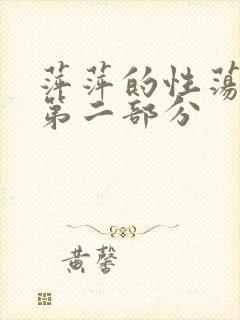 萍萍的性荡
第二部分
黄馨